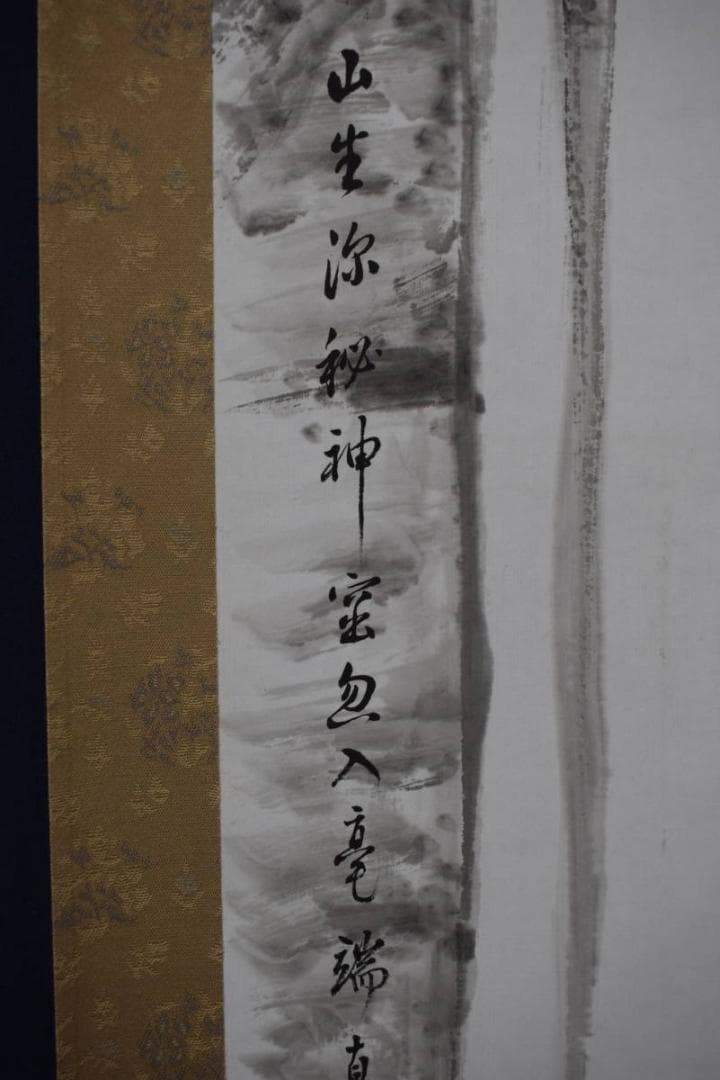 山生深秘神密忽入毫端